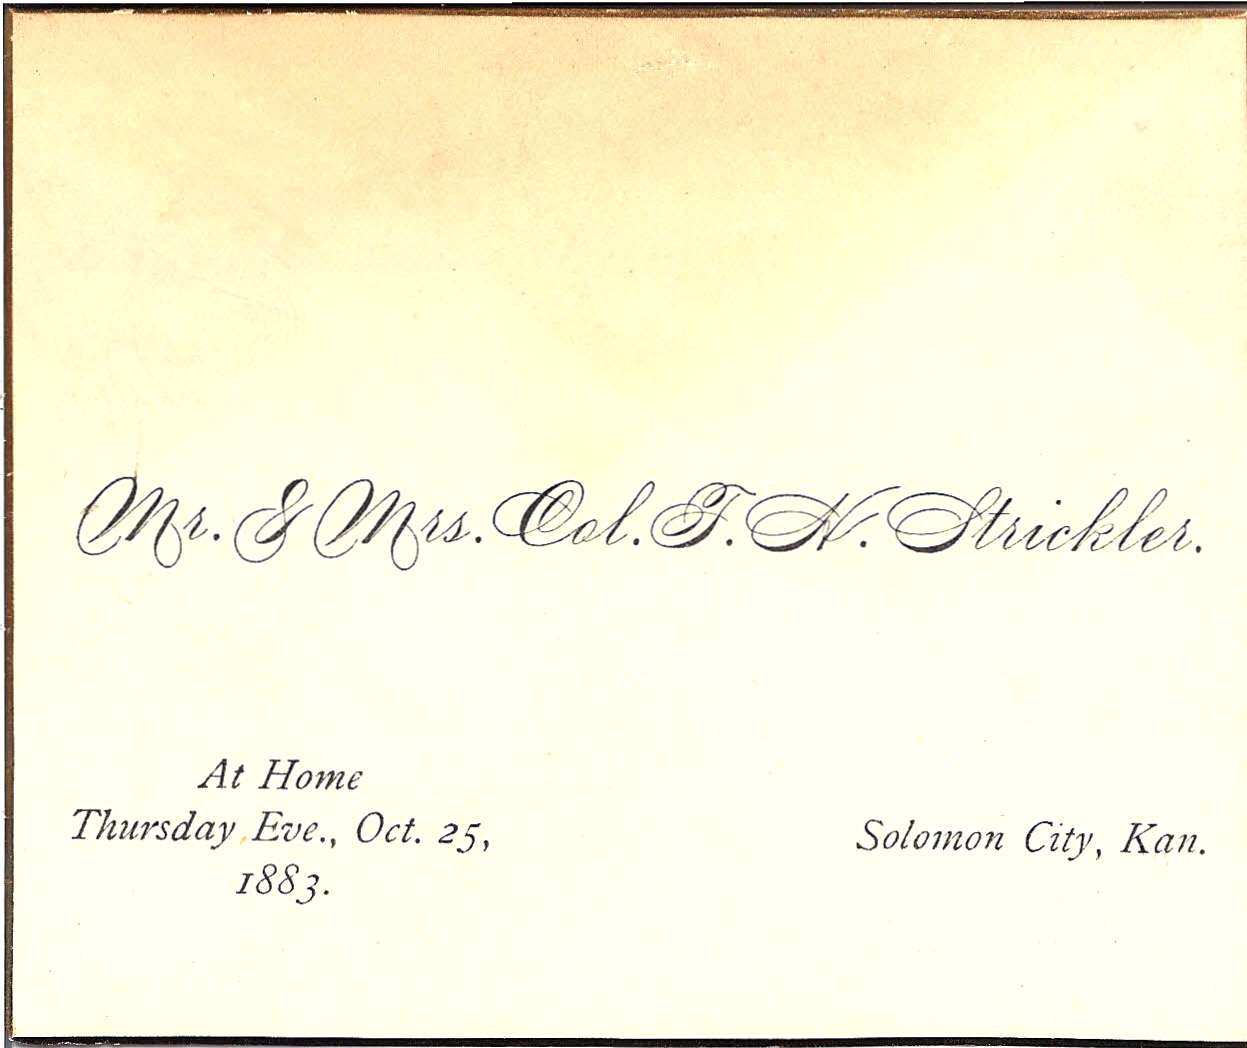 Mr. & Mrs. Col. T. H. Strickler.
At Home
Thursday Eve., Oct. 25,
1883.
Solomon City, Kan.